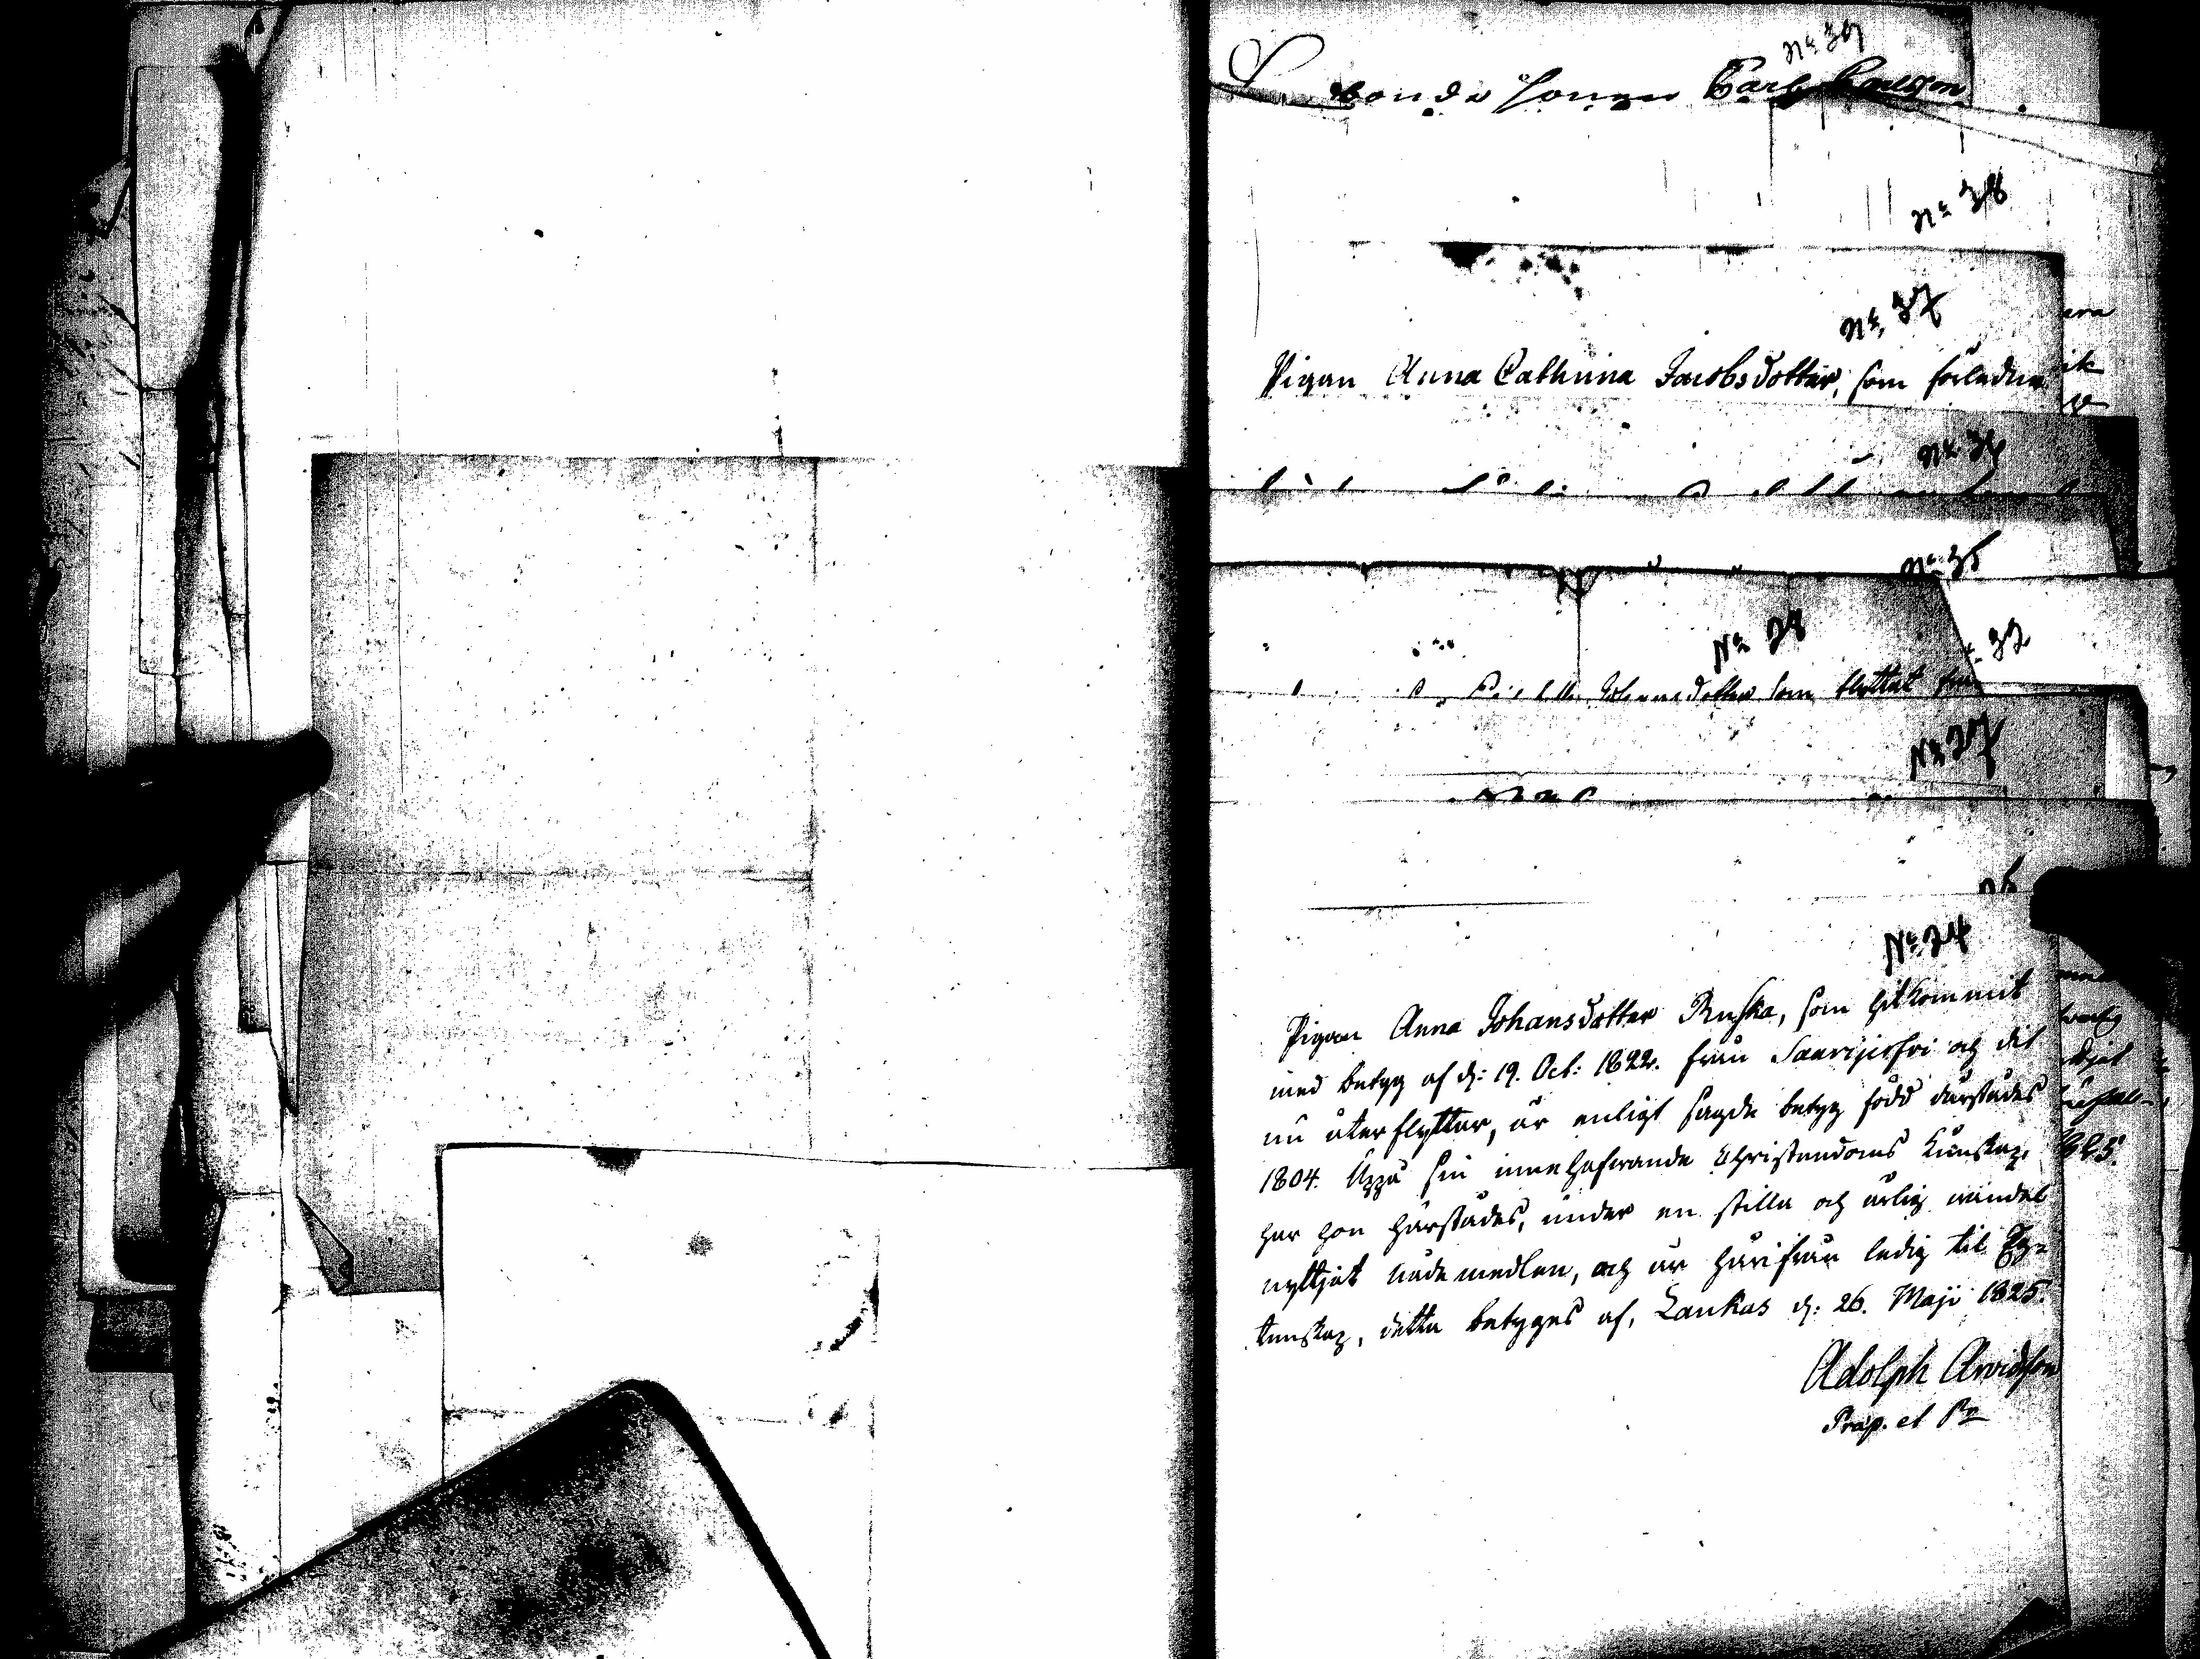 No 39
Bonde sonen Carl Carlsson
No 38
No 37
Pigan Anna Cathrina Jacobsdotter, som förleden
No 36
No 35
No 28
Johansdotter som flyttat från
32
No 27
26
No 24
Pigan Anna Johansdotter Ruska, som hitkommit
med betyg af d: 19. Oct: 1822. från Saarijerfvi och dit
nu återflyttar, är enligt sagde betyg född därstädes
1804. Uppå sin innehafwande Christendoms kunskap,
har hon härstädes, under en stilla och ärlig wandel
nyttjat nådemedlen, och är härifrån ledig til Eg-
tenskap, detta betyges af, Laukas d: 26. Maji 1825.
Adolph Arvidsson
Præp. et Pr